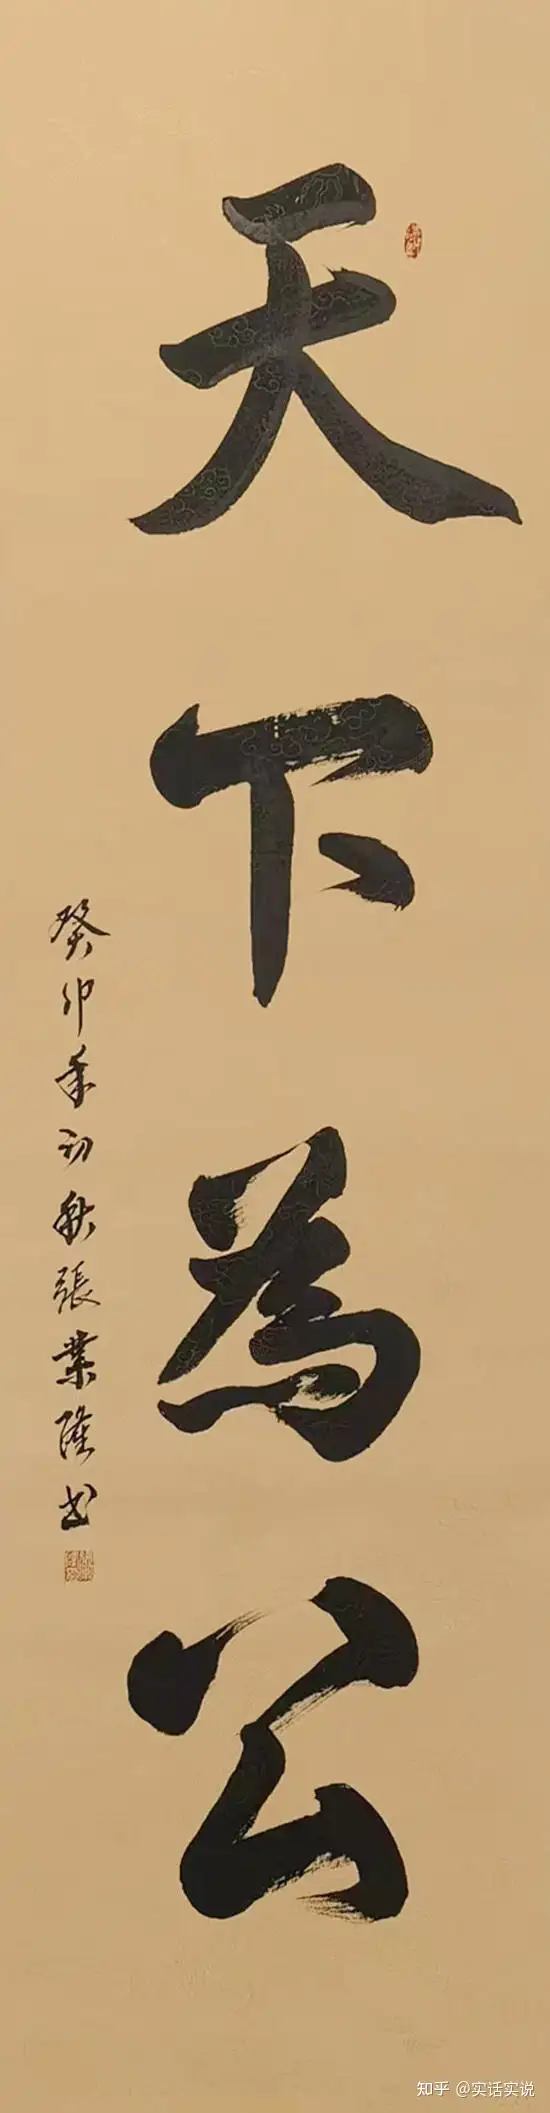 天下為公
癸卯年初秋張業隆书
知乎 @实话实说